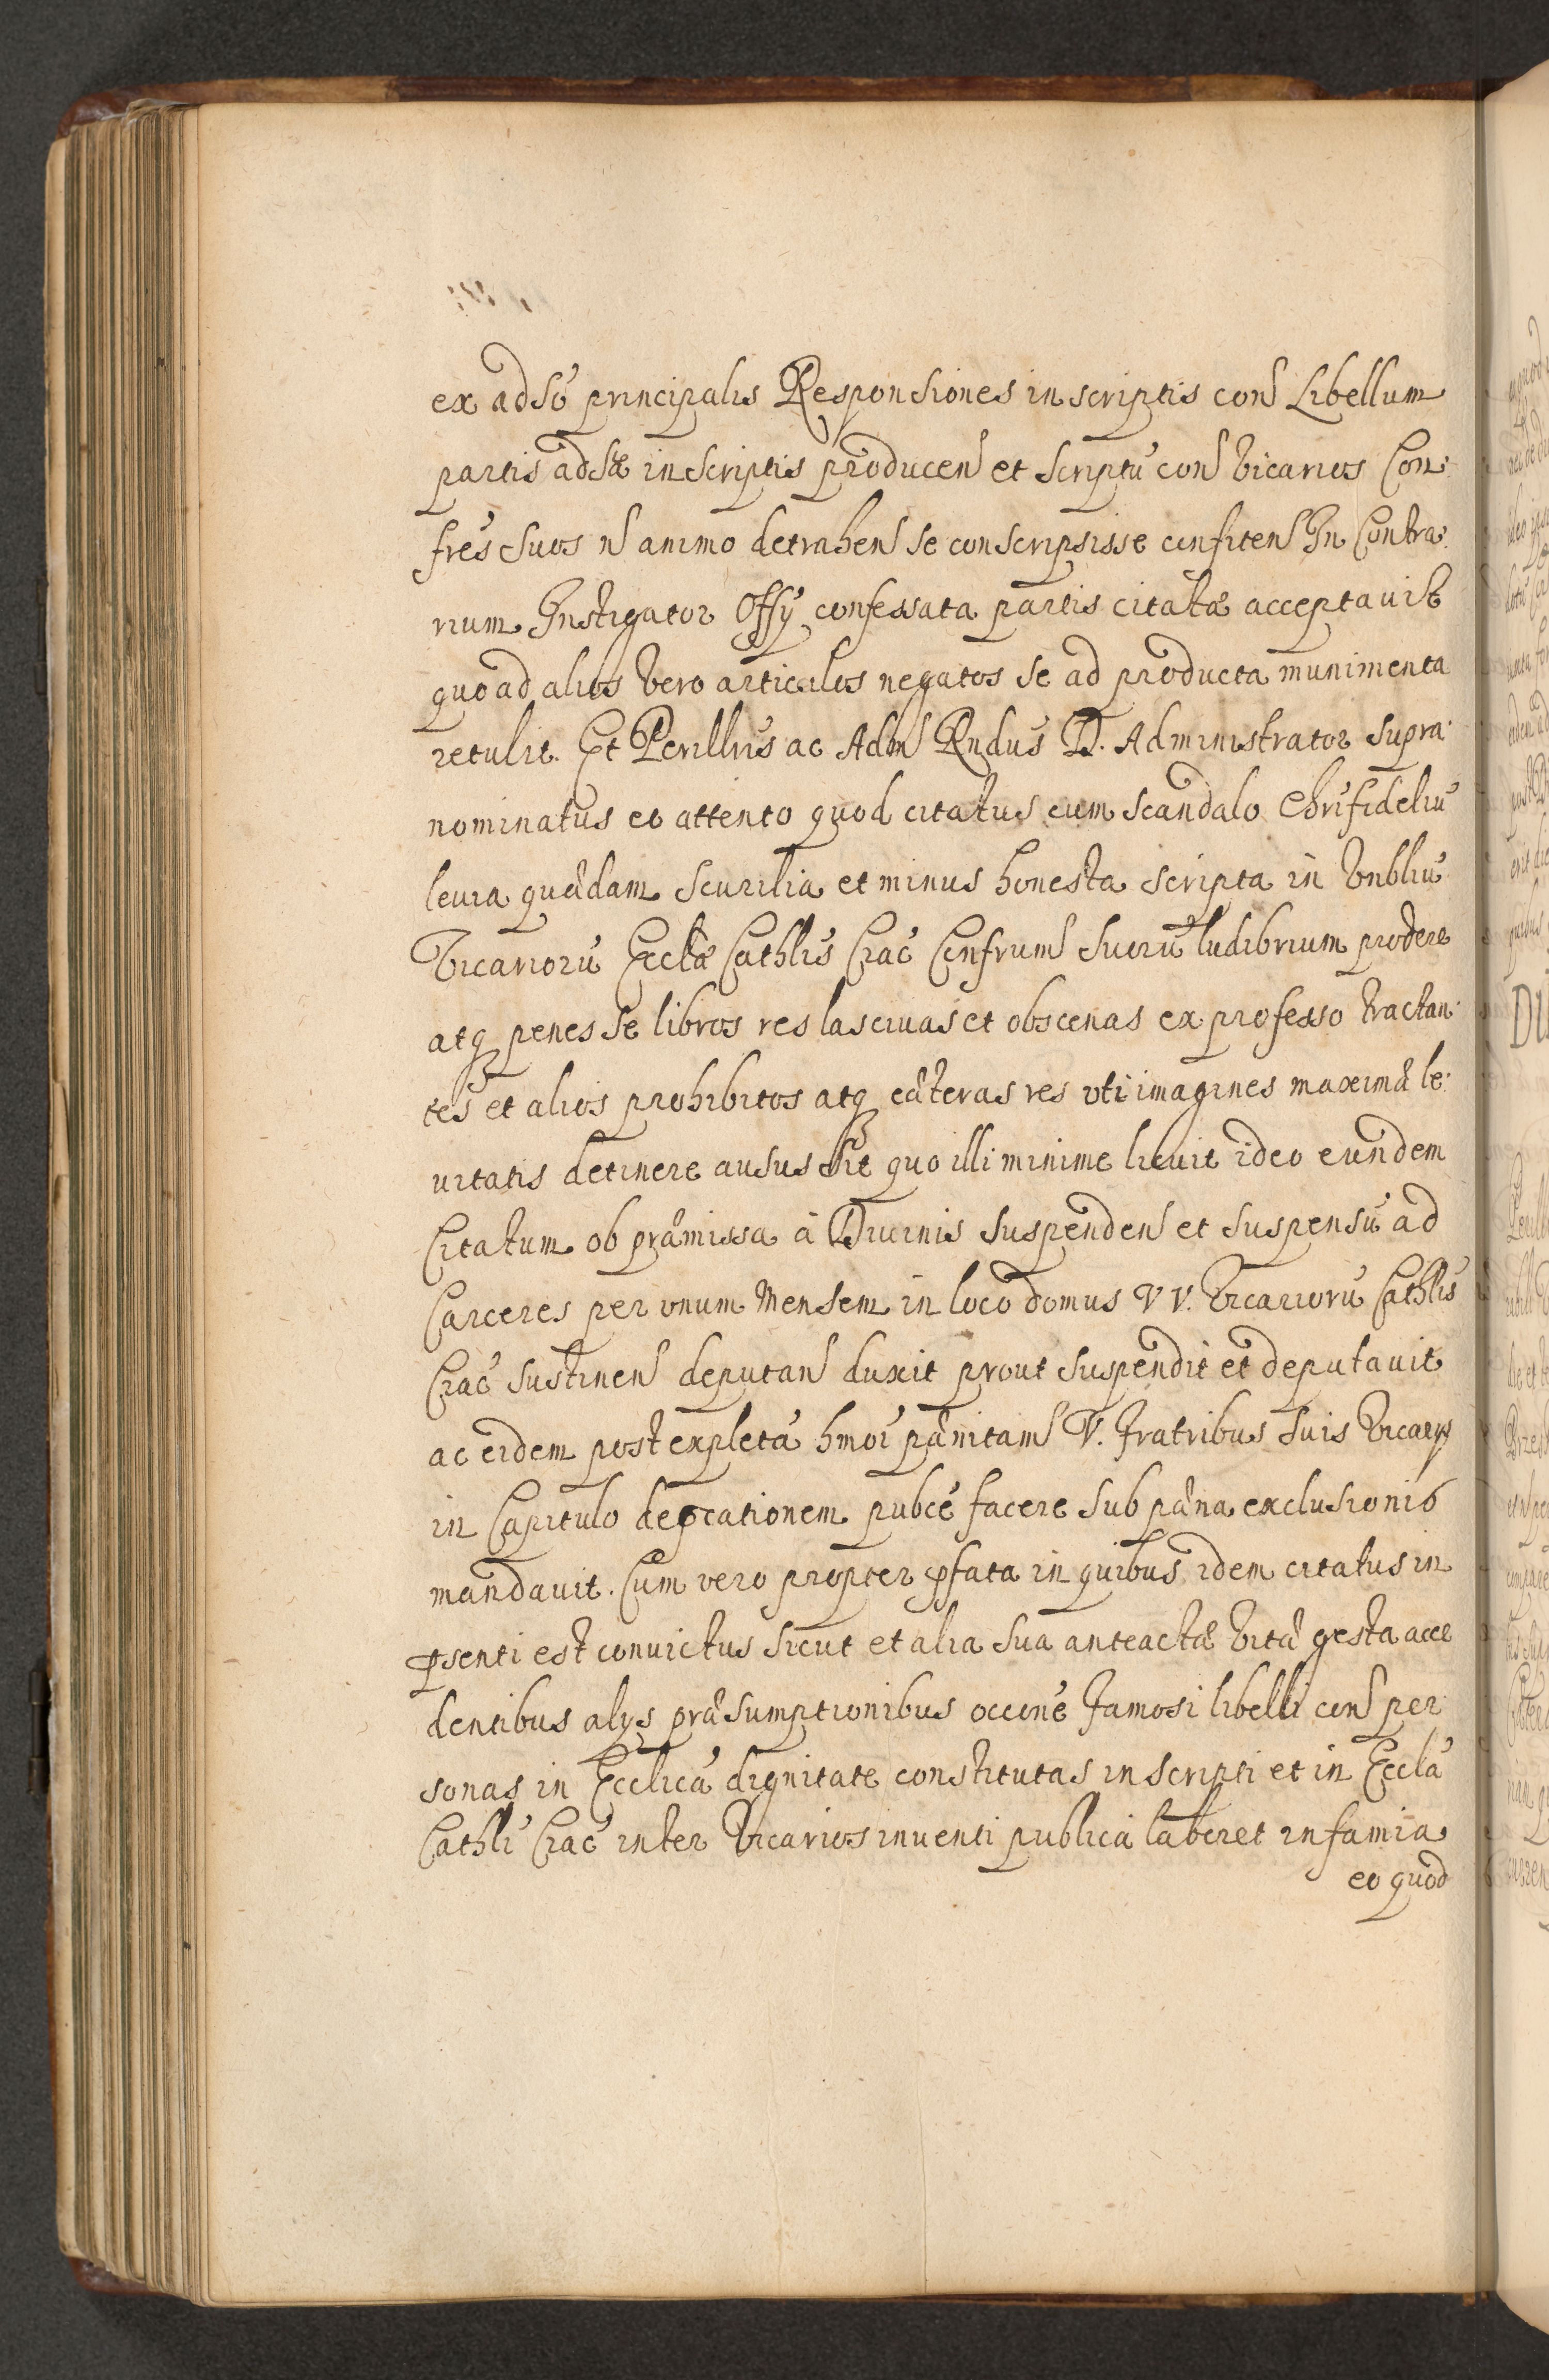 ex adso principalis Responsiones in scriptis con Libellum
partis adsæ in scriptis producen et scriptú con vicarios Con:
fres suos n animo detrahen se conscripsisse confiten In Contra:
rium Instigator Offÿ confessata partis citatæ acceptavit
quo ad alios vero articulos negatos se ad producta munimenta
retulit. Et Perillris ac Adm Rndus D. Administrator supra:
nominatus eo attento quod citatus cum scandalo Chrifideliú
leuia quædam scurilia et minus honesta scripta in
Vicariorú Ecclæ Cathlis Crac Confrum suorú ludibrium prodere
atq penes se libros res lascivas et obscenas ex professo tractan:
tes et alios prohibitos atq cæteras res uti imagines maximæ le:
vitatis detinere ausus sit quo illi minime licuit ideo eundem
Citatum ob præmissa à Divinis suspenden et suspensú ad
Carceres per unum Mensem in loco domus V V. Vicariorú Cathlis
Crac sustinen deputan duxit prout suspendit et deputavit
ac eidem post expletá hmoi pænitam V. Fratribus suis Vicarÿs
in Capitulo depcationem pubce facere sub pæna exclusionis
mandavit. Cum vero propter pfata in quibus idem citatus in
psenti est convictus sicut et alia sua anteactæ vitæ gesta acce
dentibus alÿs præsumptionibus occone Famosi libelli con per
sonas in Ecclicá dignitate constitutas inscripti et in Ecclá
Cathli Crac inter Vicarios inventi publica laboret infamia
eo quod